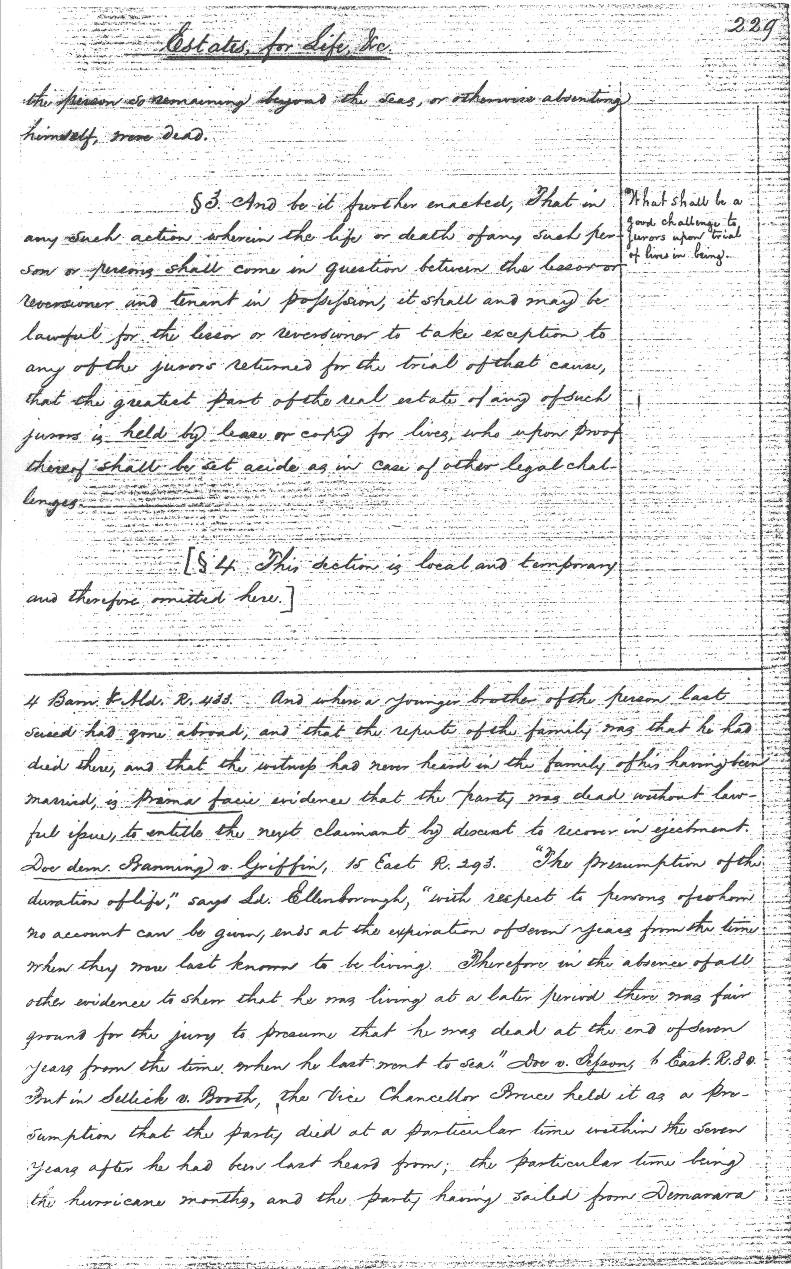 229
Estates, for Life, &c.
the person so remaining beyond the seas, or otherwise absenting
himself, were dead.
§3. And be it further enacted, That in
any such action wherein the life or death of any such per-
son or persons shall come in question between the lessor or
reversioner and tenant in possession, it shall and may be
lawful for the lessor or reversioner to take exception to
any of the jurors returned for the trial of that cause,
that the greatest part of the real estate of any of such
jurors is held by lease or copy for lives, who upon proof
thereof shall be set aside as in case of other legal chal-
lenges.
What shall be a
good challenge to
jurors upon trial
of lives in being.
[§4. This section is local and temporary
and therefore omitted here.]
4 Barn. & Ald. R. 433. And where a younger brother of the person last
seised had gone abroad, and that the repute of the family was that he had
died there, and that the witness had never heard in the family of his having been
married, is prima facie evidence that the party was dead without law-
ful issue, to entitle the next claimant by descent to recover in ejectment.
Doe dem. Banning v. Griffin, 15 East R. 293. "The presumption of the
duration of life," says Ld. Ellenborough, "with respect to persons of whom
no account can be given, ends at the expiration of seven years from the time
when they were last known to be living. Therefore in the absence of all
other evidence to shew that he was living at a later period there was fair
ground for the jury to presume that he was dead at the end of seven
years from the time when he last went to sea." Doe v. Jesson, 6 East. R. 80.
But in Sellick v. Booth, the Vice Chancellor Bruce held it as a pre-
sumption that the party died at a particular time within the seven
years after he had been last heard from; the particular time being
the hurricane months, and the party having sailed from Demarara